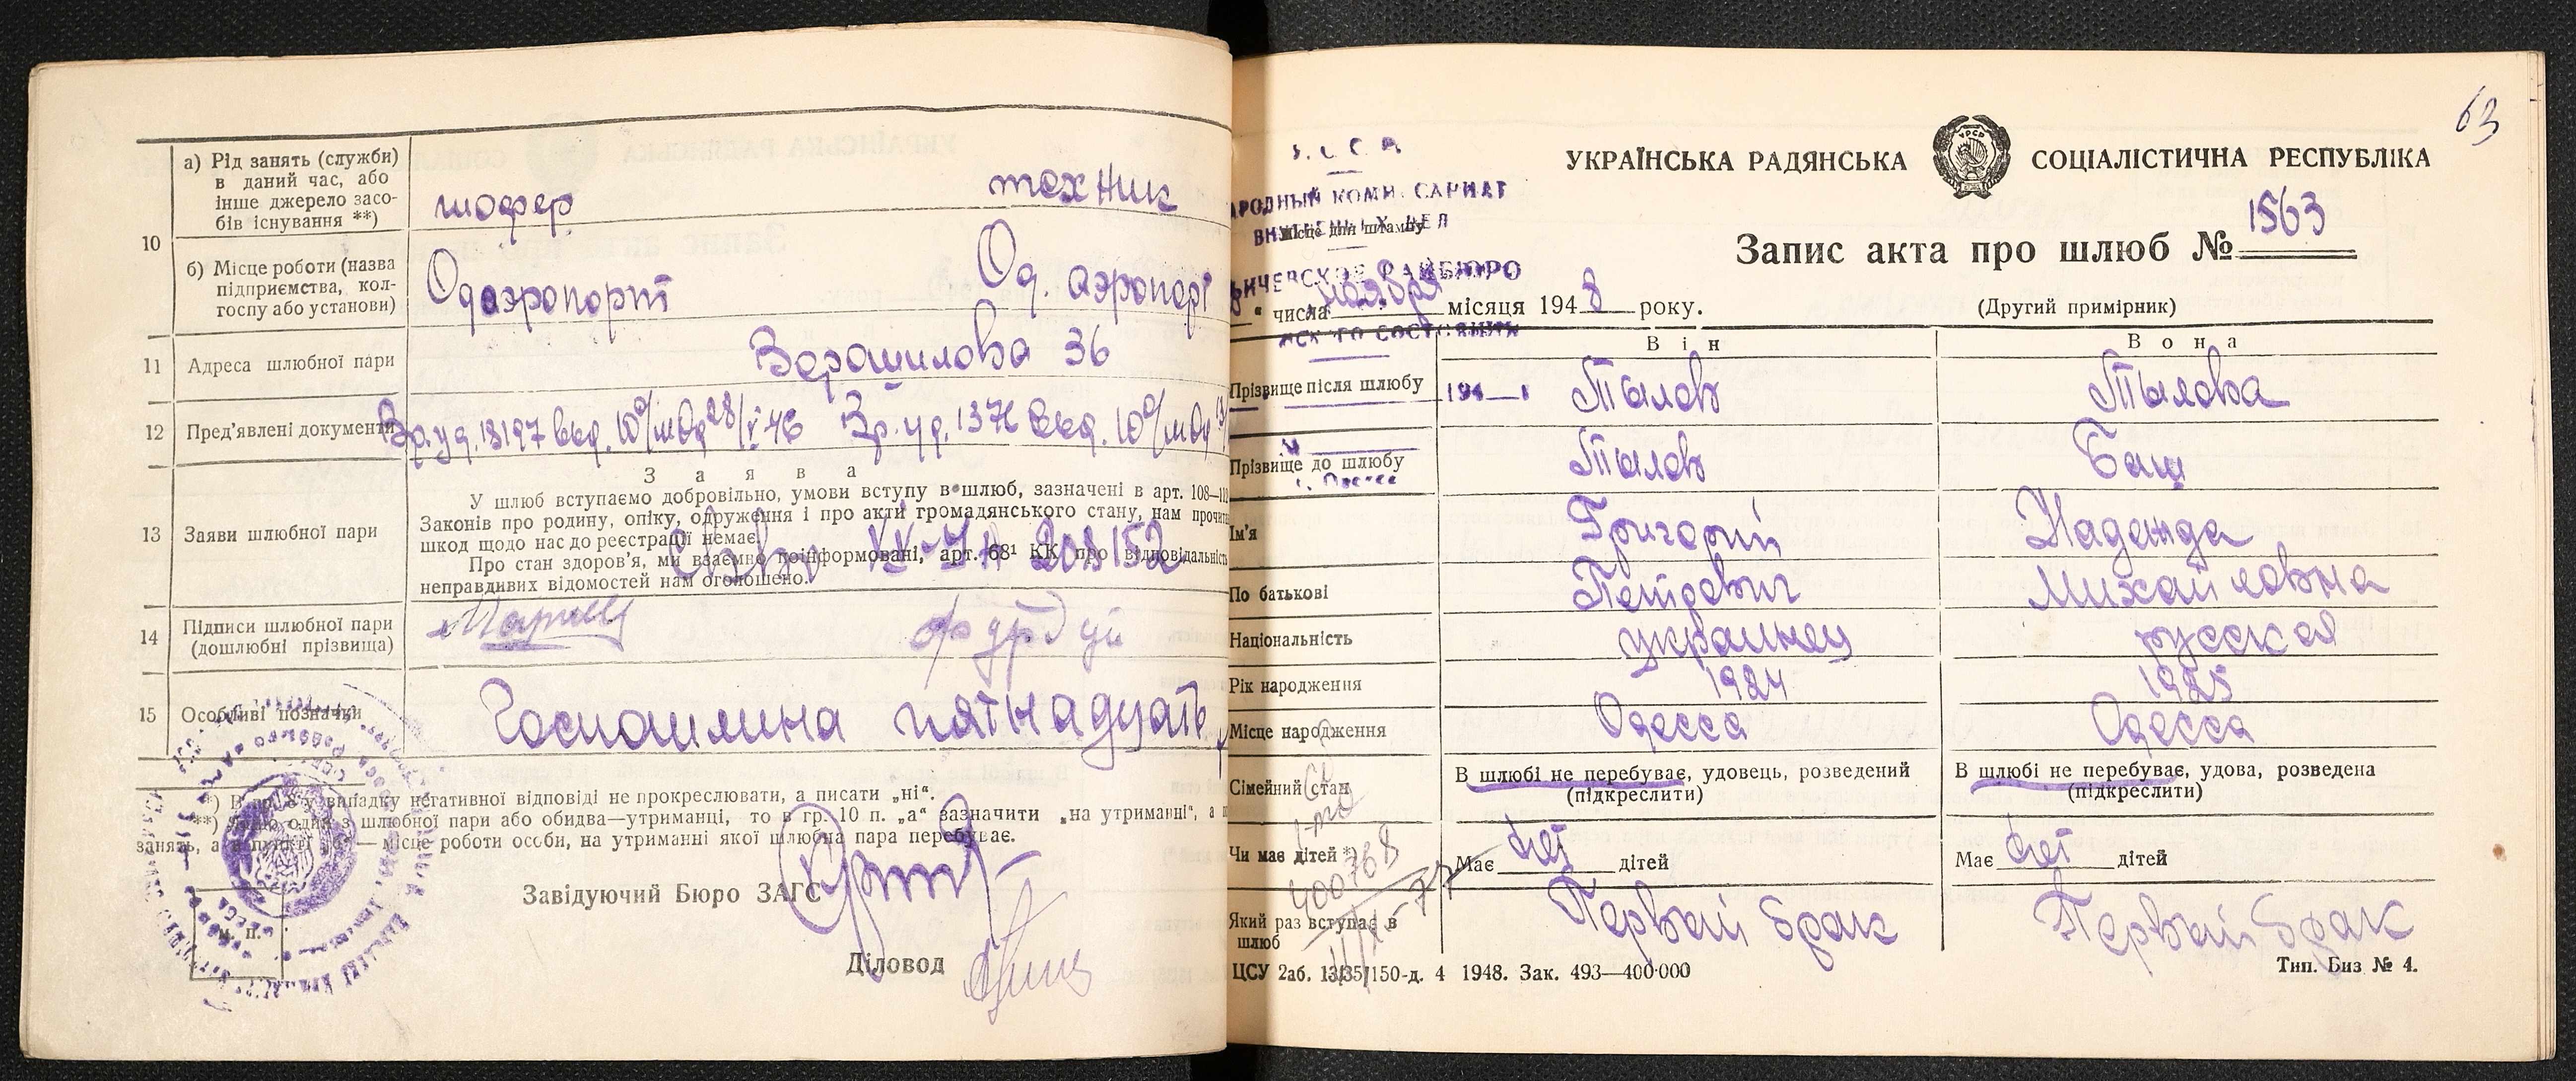 10
а) Рід занять (служби)
в даний час, або
інше джерело засо-
бів існування **)
шофер
техник
б) Місце роботи (назва
підприємства, кол-
госпу або установи)
Одаэропорт
Од. аэропорт
11 Адреса шлюбної пари
Ворошилова 36
12 Пред'явлені документи
Вр. уд. 13197 выд. 10 о/м Од 28/V 46 Вр. уд. 1376 выд. 10 о/м Од
13 Заяви шлюбної пари
З а я в а
У шлюб вступаємо добровільно, умови вступу в шлюб, зазначені в арт. 108—112
Законів про родину, опіку, одруження і про акти громадянського стану, нам прочита
шкод щодо нас до реєстрації немає.
Про стан здоров'я, ми взаємно поінформовані, арт. 68¹ КК про відповідальність
неправдивих відомостей нам оголошено.
208152
14 Підписи шлюбної пари
(дошлюбні прізвища)
15 Особливі позначки
Госпошлина пятнадцать
*) В гр. 8 у випадку негативної відповіді не прокреслювати, а писати „ні“.
**) Якщо один з шлюбної пари або обидва—утриманці, то в гр. 10 п. „а“ зазначити „на утриманні“, а п
занять, а в пункті „б“ — місце роботи особи, на утриманні якої шлюбна пара перебуває.
Завідуючий Бюро ЗАГС
м. п.
Діловод
63
УКРАЇНСЬКА РАДЯНСЬКА СОЦІАЛІСТИЧНА РЕСПУБЛІКА
УРСР
У. С. С. Р.
АРОДНЫЙ КОМИССАРИАТ
ВНУТРЕННИХ ДЕЛ
Місце для штампу
ИЧЕВСКОЕ РАЙБЮРО
Запис акта про шлюб № 1563
8 " числа ноября місяця 1948 року.
(Другий примірник)
СКОГО СОСТОЯНИЯ
В і н
В о н а
Прізвище після шлюбу
194
Тылов
Тылова
Прізвище до шлюбу
г. Одесса
Тылов
Баш
Ім'я
Григорий
Надежда
По батькові
Петрович
Михайловна
Національність
украинец
русская
Рік народження
1924
1925
Місце народження
Одесса
Одесса
Сімейний стан
В шлюбі не перебуває, удовець, розведений
(підкреслити)
В шлюбі не перебуває, удова, розведена
(підкреслити)
Чи має дітей *)
Має нет дітей
Має нет дітей
400768
Який раз вступає в
шлюб
Первый брак
Первый брак
ЦСУ 2аб. 13/35/150-д. 4 1948. Зак. 493—400·000
Тип. Биз № 4.